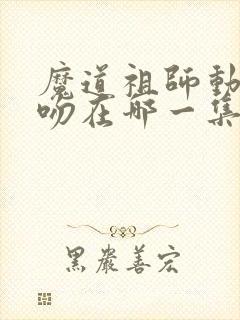 魔道祖師動
吻在哪一集
黑嚴善宏